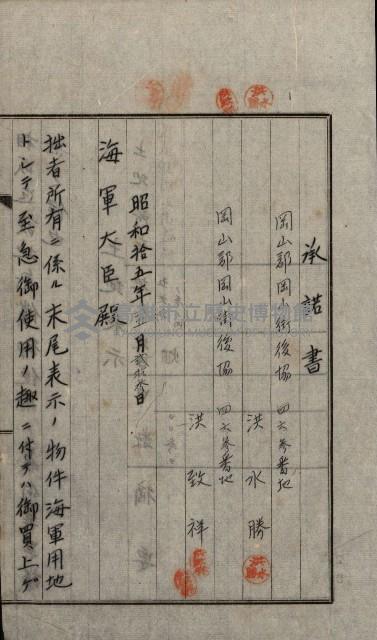 承諾書
岡山郡岡山街後協四六参番地
洪水勝
岡山郡岡山街後協四六参番地
洪致祥
昭和拾五年
海軍大臣殿
拙者所有ニ係ル末尾表示ノ物件海軍用地
トシテ至急御使用ノ趣ニ付テハ御買上ゲ